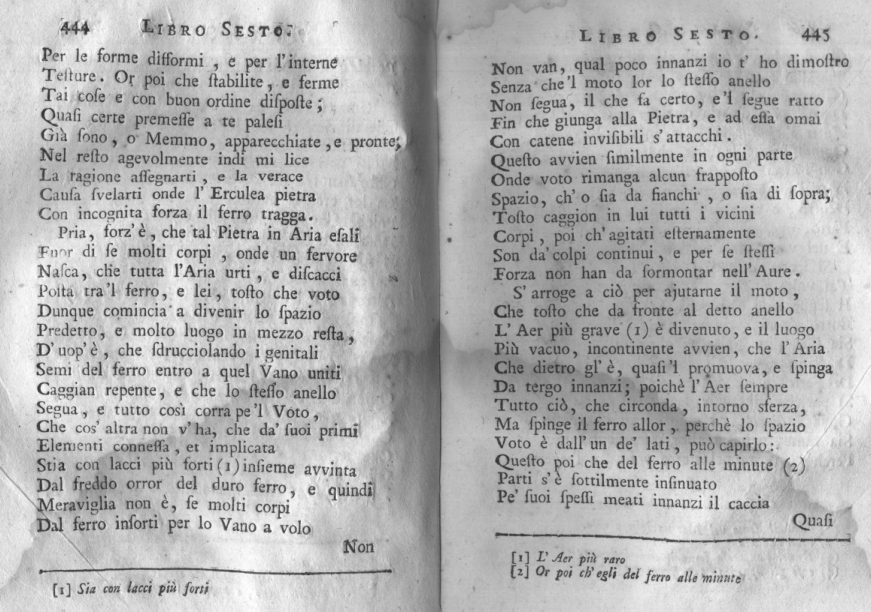 444 LIBRO SESTO.
Per le forme difformi, e per l'interne
Teſture. Or poi che ſtabilite, e ferme
Tai coſe e con buon ordine diſpoſte;
Quaſi certe premeſſe a te paleſi
Già ſono, o Memmo, apparecchiate, e pronte;
Nel reſto agevolmente indi mi lice
La ragione aſſegnarti, e la verace
Cauſa ſvelarti onde l'Erculea pietra
Con incognita forza il ferro tragga.
Pria, forz'è, che tal Pietra in Aria eſali
Fuor di ſe molti corpi, onde un fervore
Naſca, che tutta l'Aria urti, e diſcacci
Poſta tra'l ferro, e lei, toſto che voto
Dunque comincia a divenir lo ſpazio
Predetto, e molto luogo in mezzo reſta,
D'uop'è, che ſdrucciolando i genitali
Semi del ferro entro a quel Vano uniti
Caggian repente, e che lo ſteſſo anello
Segua, e tutto così corra pe'l Voto,
Che coſ'altra non v'ha, che da' ſuoi primi
Elementi conneſſa, et implicata
Stia con lacci più forti (1) inſieme avvinta
Dal freddo orror del duro ferro, e quindi
Meraviglia non è, ſe molti corpi
Dal ferro inſorti per lo Vano a volo
Non
[1] Sia con lacci più forti
LIBRO SESTO. 445
Non van, qual poco innanzi io t'ho dimoſtro
Senza che'l moto lor lo ſteſſo anello
Non ſegua, il che fa certo, e'l ſegue ratto
Fin che giunga alla Pietra, e ad eſſa omai
Con catene inviſibili s'attacchi.
Queſto avvien ſimilmente in ogni parte
Onde voto rimanga alcun frappoſto
Spazio, ch'o ſia da fianchi, o ſia di ſopra;
Toſto caggion in lui tutti i vicini
Corpi, poi ch'agitati eſternamente
Son da'colpi continui, e per ſe ſteſſi
Forza non han da formontar nell'Aure.
S'arroge a ciò per ajutarne il moto,
Che toſto che da fronte al detto anello
L'Aer più grave (1) è divenuto, e il luogo
Più vacuo, incontinente avvien, che l'Aria
Che dietro gl'è, quaſi'l promuova, e ſpinga
Da tergo innanzi; poichè l'Aer ſempre
Tutto ciò, che circonda, intorno sferza,
Ma ſpinge il ferro allor, perchè lo ſpazio
Voto è dall'un de' lati, può capirlo:
Queſto poi che del ferro alle minute (2)
Parti s'è ſottilmente inſinuato
Pe' ſuoi ſpeſſi meati innanzi il caccia
Quaſi
[1] L'Aer più raro
[2] Or poi ch'egli del ferro alle minute